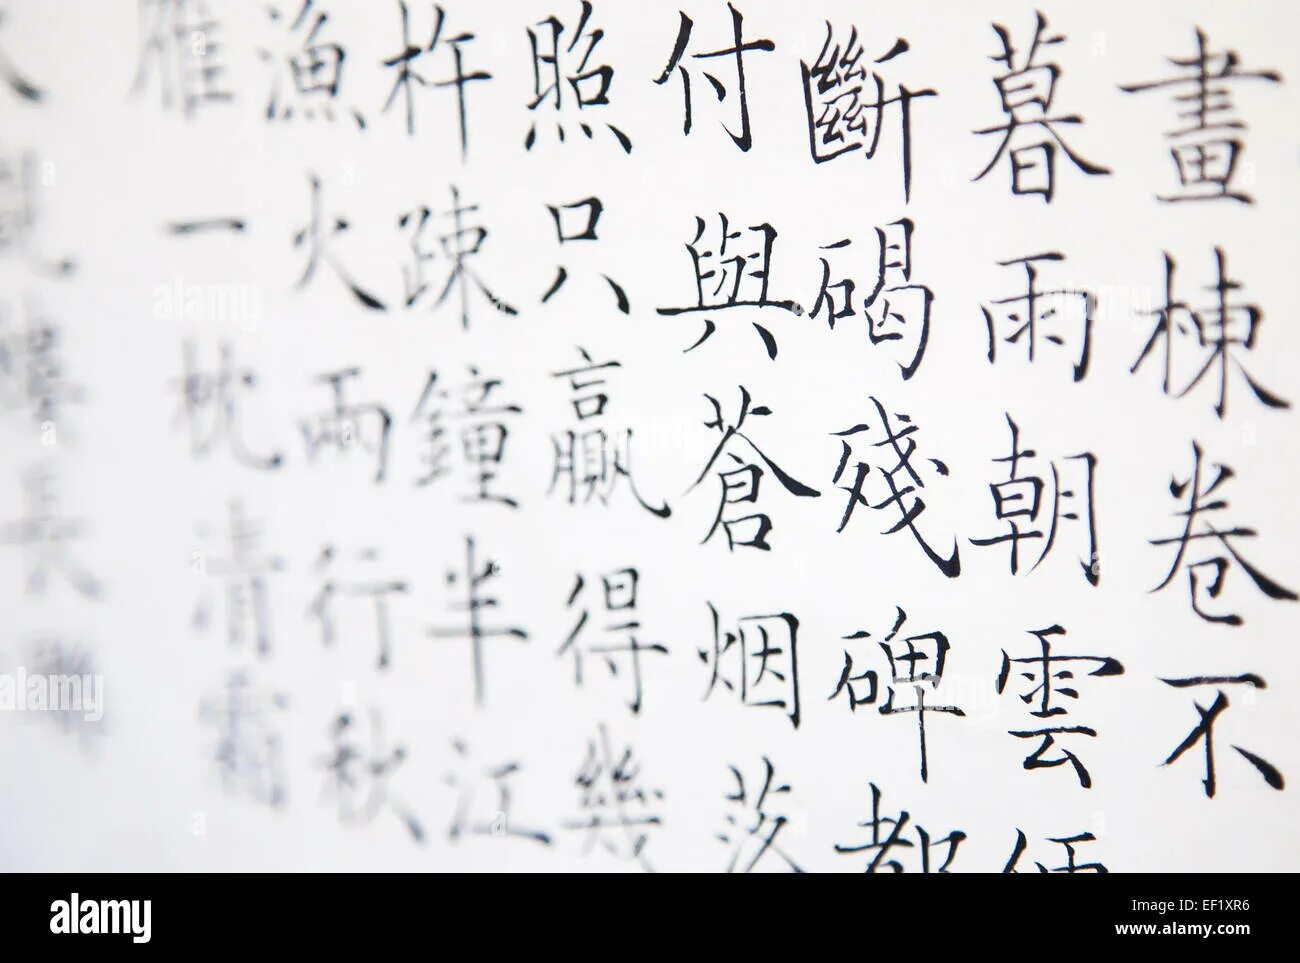 畫棟卷不
暮雨朝雲便
斷碣殘碑都
付與蒼烟落
照只贏得幾
杵疎鐘半江
漁火兩行秋
雁一枕清霜
長聯
alamy
alamy
Image ID: EF1XR6
www.alamy.com